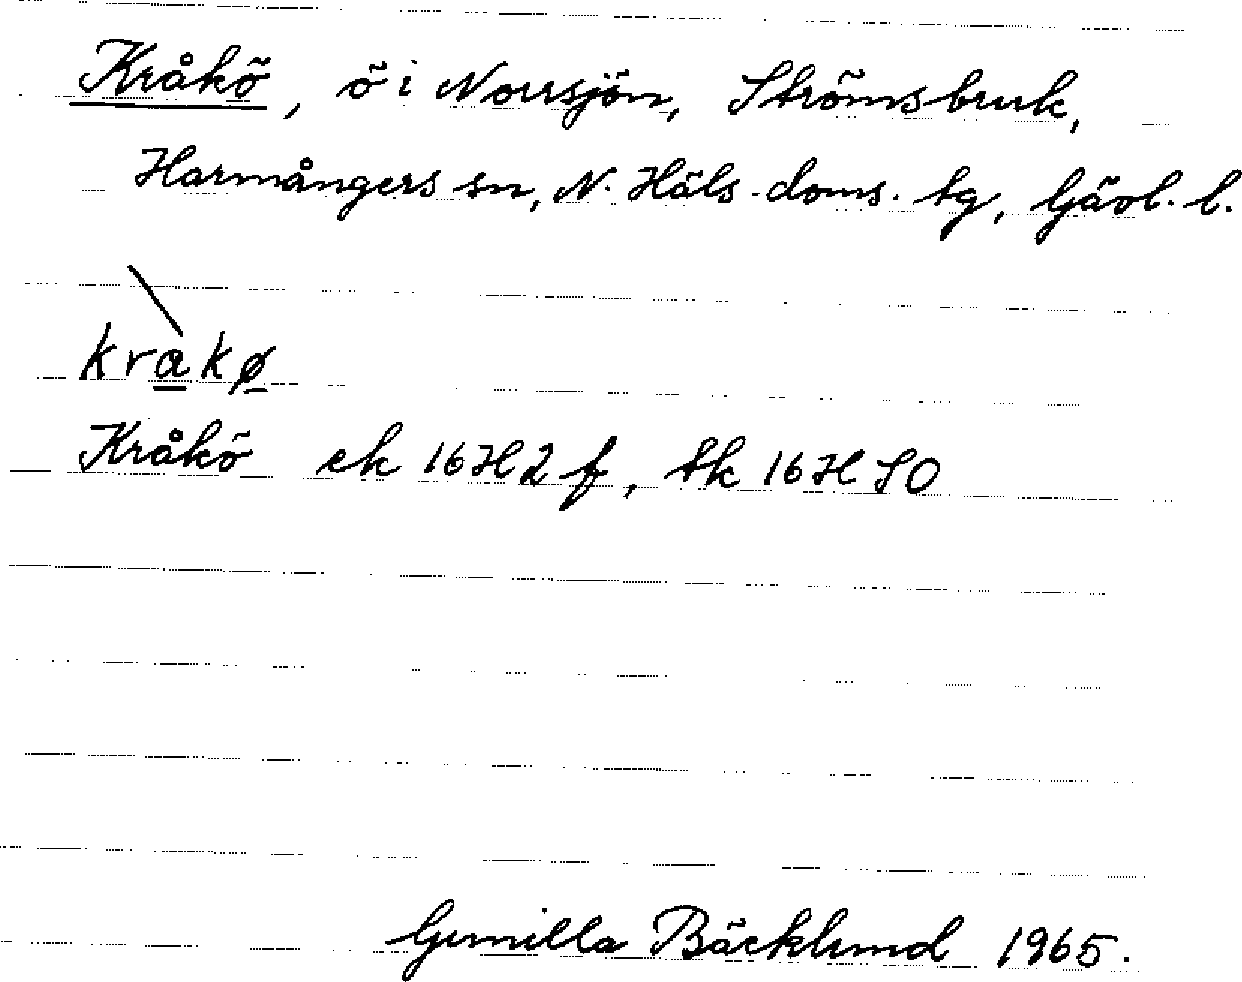 Kråkö, ö i Norrsjön, Strömsbruk,
Harmångers sn, N. Häls. doms. tg, Gävl. l.
kràkø
Kråkö ek 16H2f, tk 16H SO
Gunilla Bäcklund 1965.